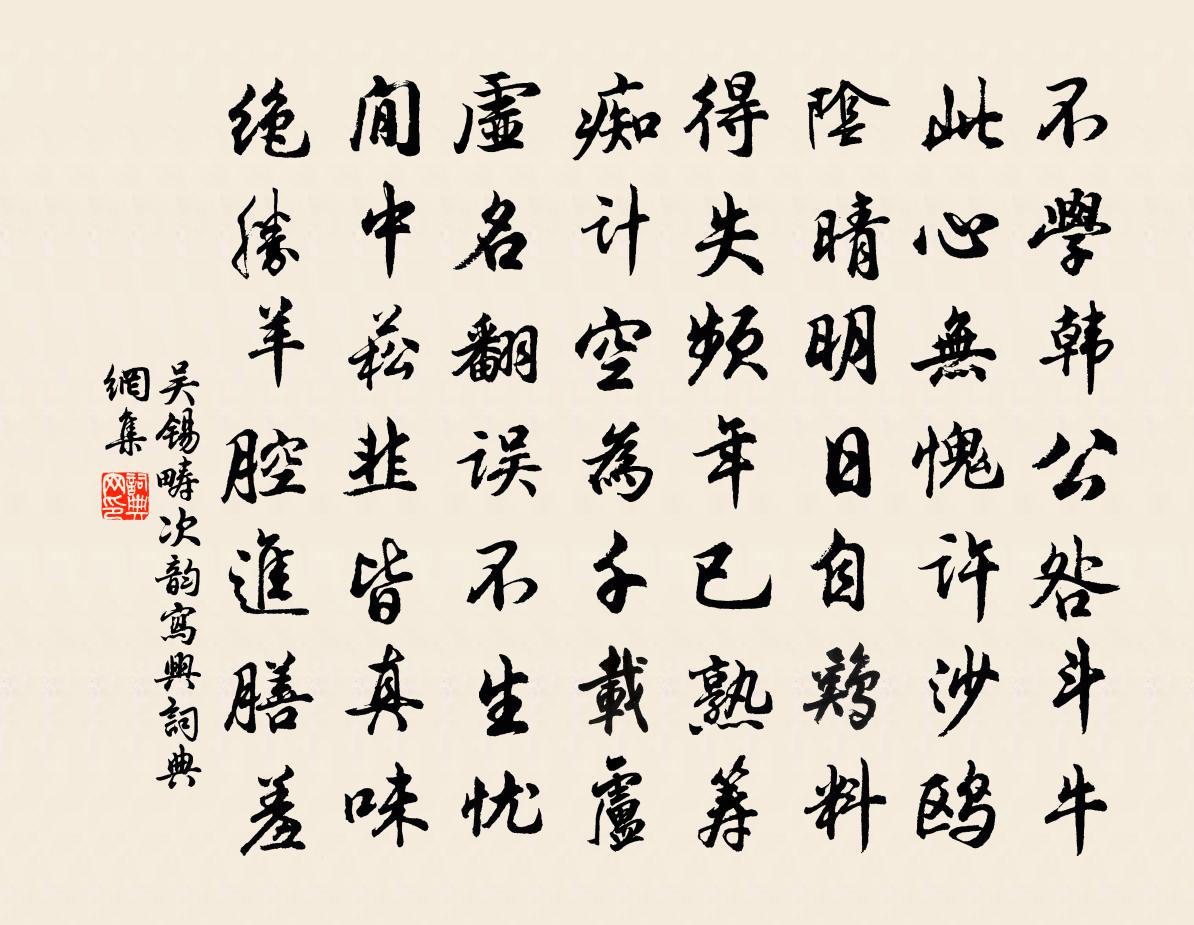 不學韩公咎斗牛
此心無愧许沙鸥
陰晴明日自鷄料
得失频年已熟筹
痴计空為千載盧
虚名翻误不生忧
閒中菘韭皆真味
绝勝羊腔進膳羞
吴锡畴次韵寫興詞典
網集
詞典
网印